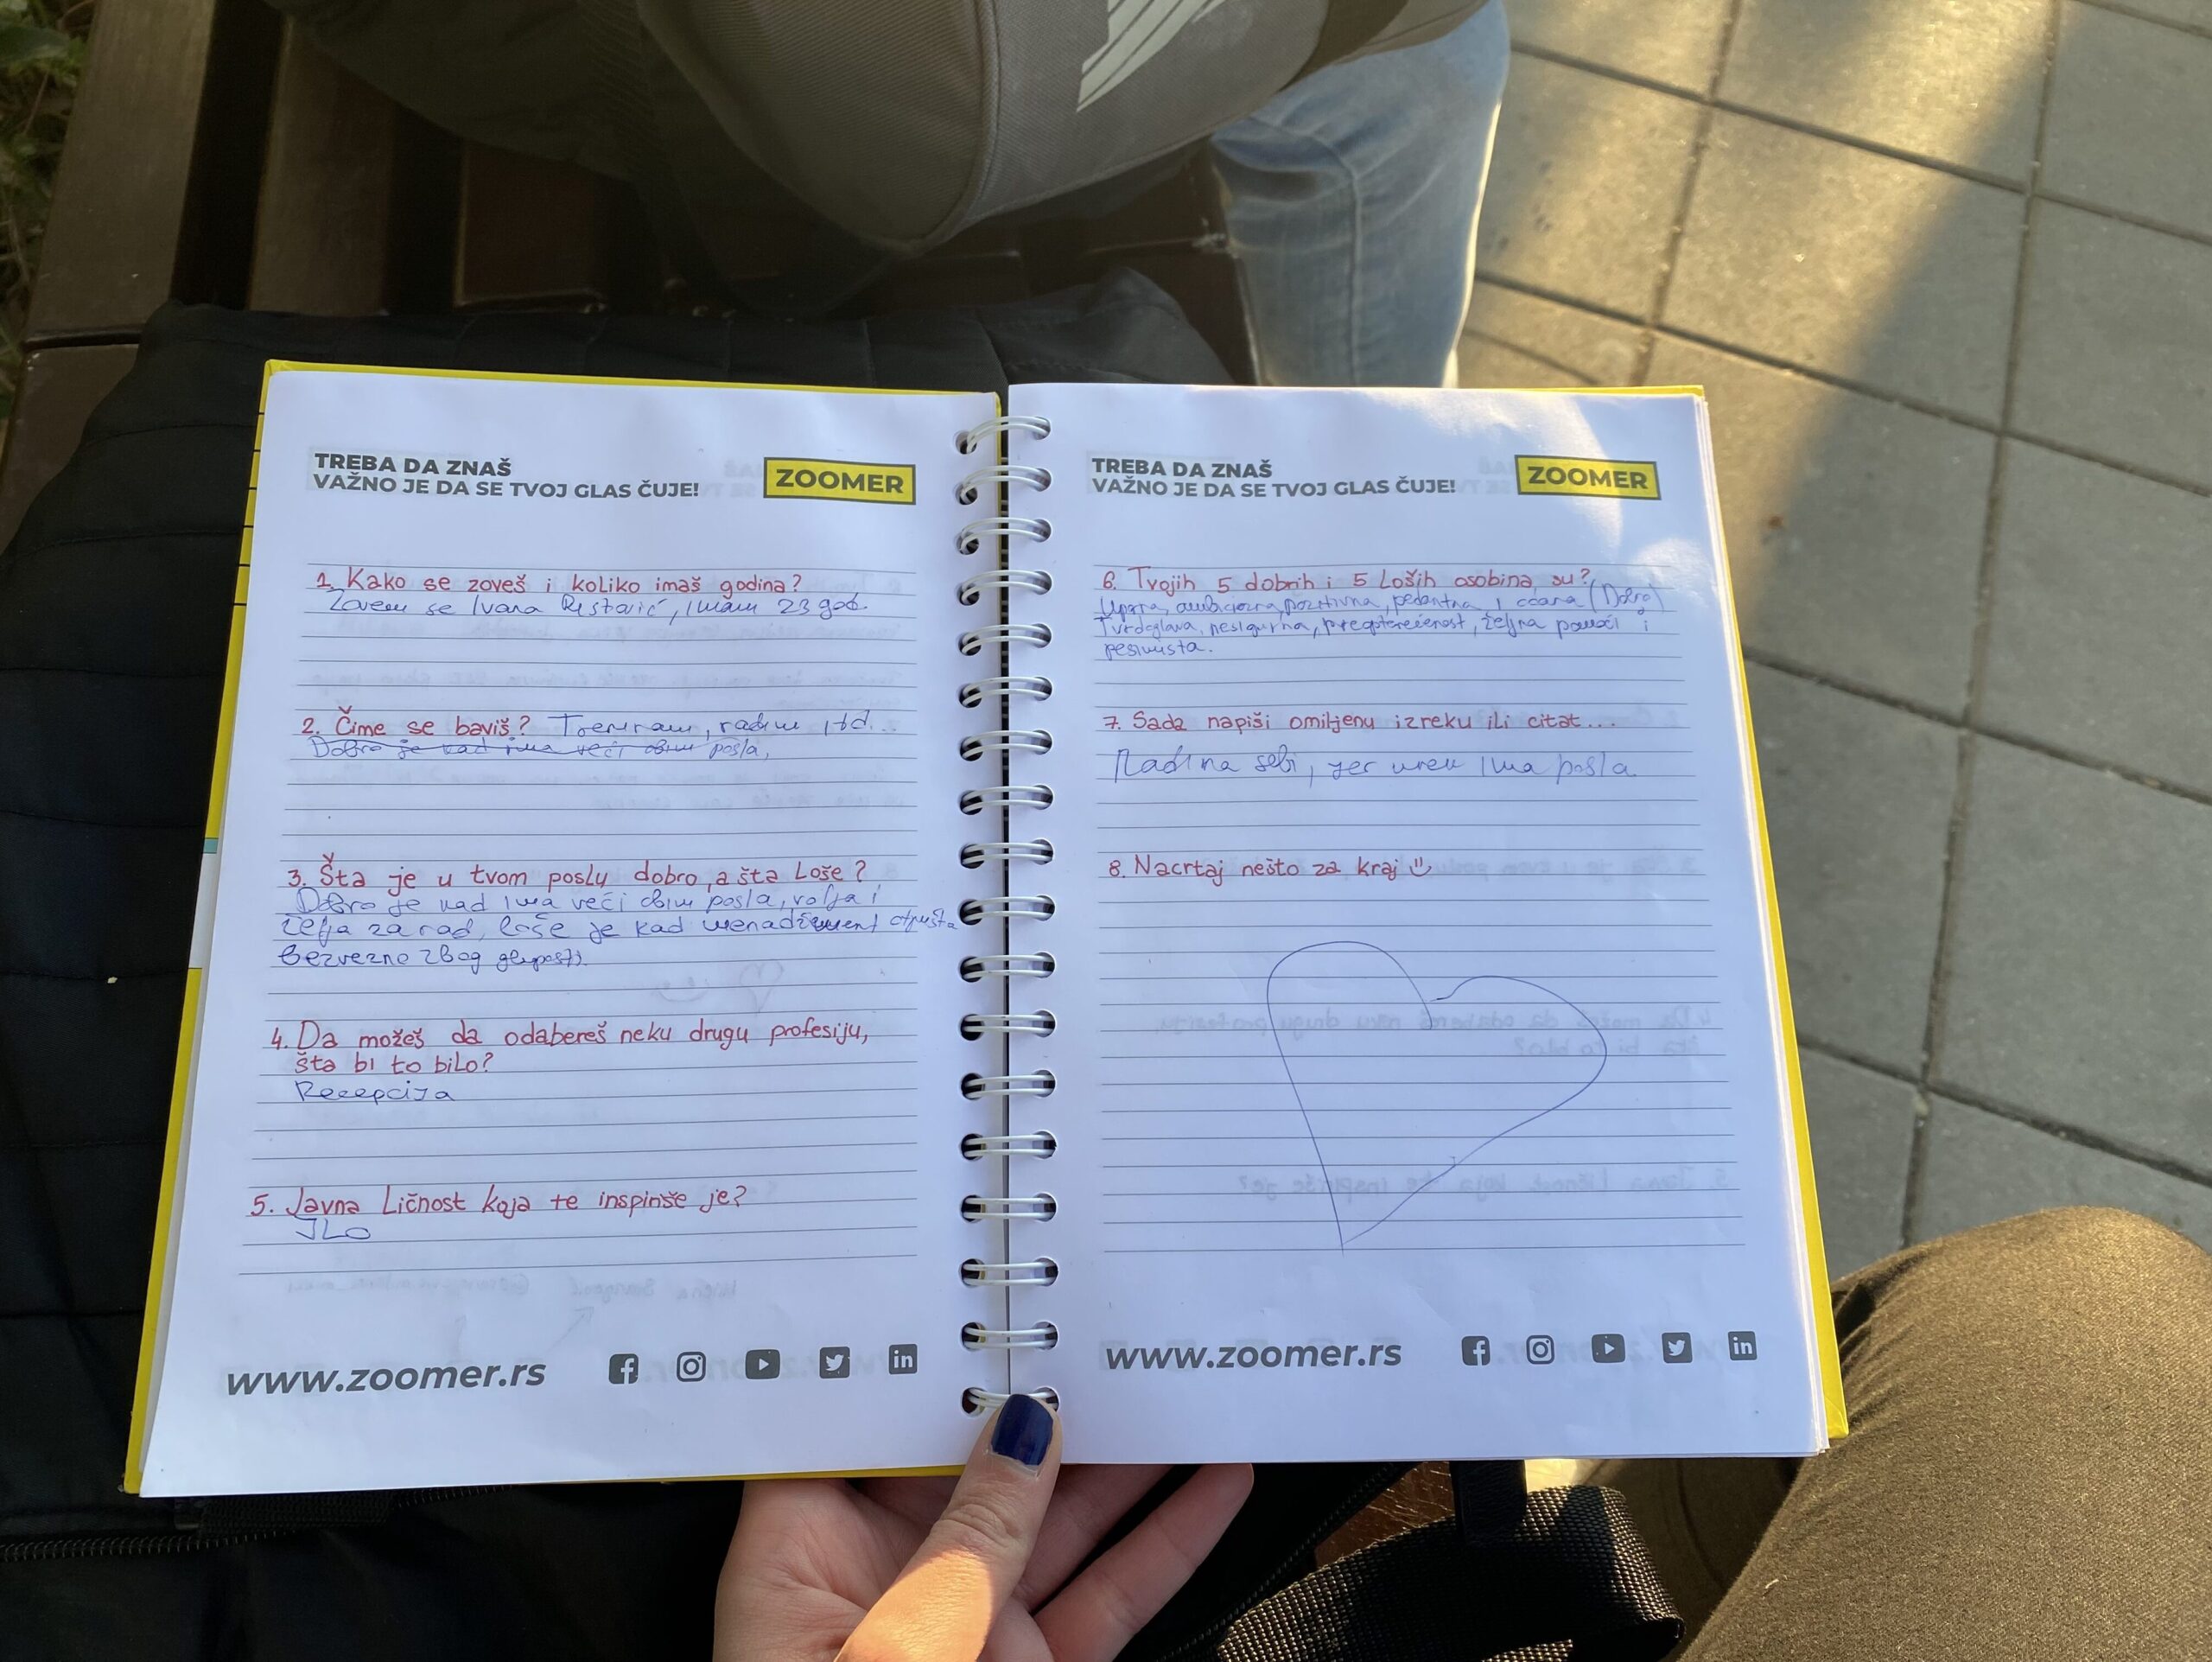 TREBA DA ZNAŠ
VAŽNO JE DA SE TVOJ GLAS ČUJE!
ZOOMER
1. Kako se zoveš i koliko imaš godina?
Zovem se Ivana Ristović, imam 23 god.
2. Čime se baviš? Treniram, radim itd...
Dobro je kad ima veći obim posla,
3. Šta je u tvom poslu dobro, a šta Loše?
Dobro je kad ima veći obim posla, volja i
želja za rad, loše je kad menadžment otpušta
bezvezno zbog gluposti.
4. Da možeš da odabereš neku drugu profesiju,
šta bi to bilo?
Recepcija
5. Javna Ličnost koja te inspiriše je?
JLo
www.zoomer.rs
TREBA DA ZNAŠ
VAŽNO JE DA SE TVOJ GLAS ČUJE!
ZOOMER
6. Tvojih 5 dobrih i 5 Loših osobina su?
Uporna, ambiciozna, pozitivna, pedantna i (Dobro)
Tvrdglava, nesigurna, preopterećenost, željna pomoći i
pesimista.
7. Sada napiši omiljenu izreku ili citat...
Radi na sebi, jer uvek ima posla.
8. Nacrtaj nešto za kraj
www.zoomer.rs